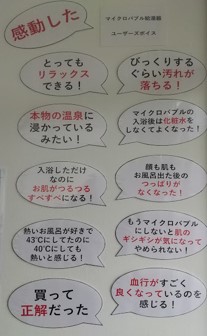 感動した
マイクロバブル給湯器
ユーザーズボイス
とっても
リラックス
できる！
びっくりする
ぐらい汚れが
落ちる！
本物の温泉に
浸かっている
みたい！
マイクロバブルの
入浴後は化粧水を
しなくてよくなった！
入浴しただけ
なのに
お肌がつるつる
すべすべになる！
顔も肌も
お風呂出た後の
つっぱりが
なくなった！
熱いお風呂が好きで
43℃にしてたのに
40℃にしても
熱いと感じる！
もうマイクロバブル
にしないと肌の
ギシギシが気になって
やめられない！
買って
正解だった
血行がすごく
良くなっているのを
感じる！